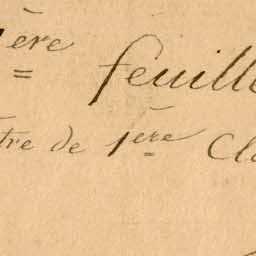 1ère feuille
tre de 1ère Cl